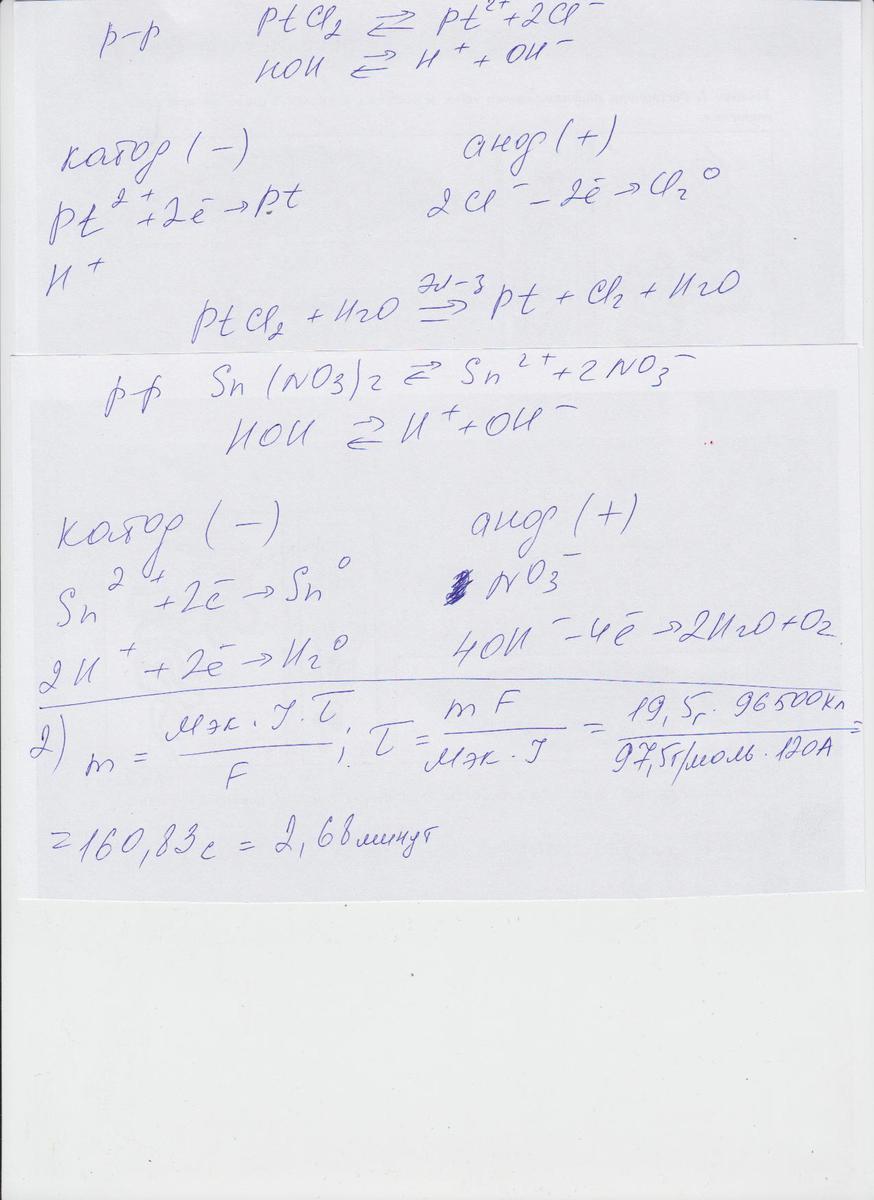 р-р PtCl₂ ⇄ Pt²⁺ + 2Cl⁻
HOH ⇄ H⁺ + OH⁻
катод (−) анод (+)
Pt²⁺ + 2ē → Pt 2Cl⁻ − 2ē → Cl₂⁰
H⁺
PtCl₂ + H₂O ⇄ эл-з Pt + Cl₂ + H₂O
р-р Sn(NO₃)₂ ⇄ Sn²⁺ + 2NO₃⁻
HOH ⇄ H⁺ + OH⁻
катод (−) анод (+)
Sn²⁺ + 2ē → Sn⁰ NO₃⁻
2H⁺ + 2ē → H₂⁰ 4OH⁻ − 4ē → 2H₂O + O₂
2) m = Mэк · J · τ / F ; τ = m F / Mэк · J = 19,5г · 96500Кл / 97,5г/моль · 120А =
= 160,83 с = 2,68 минут